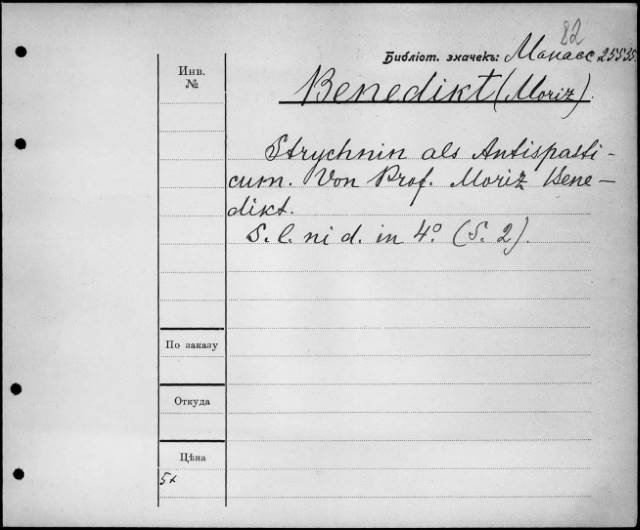 82
Библіот. значекъ: Манасс 25535.
Инв.
№
Benedikt (Moriz).
Strychnin als Antispasti-
cum. Von Prof. Moriz Bene-
dikt.
S. l. ni d. in 4º. (S. 2).
По заказу
Откуда
Цѣна